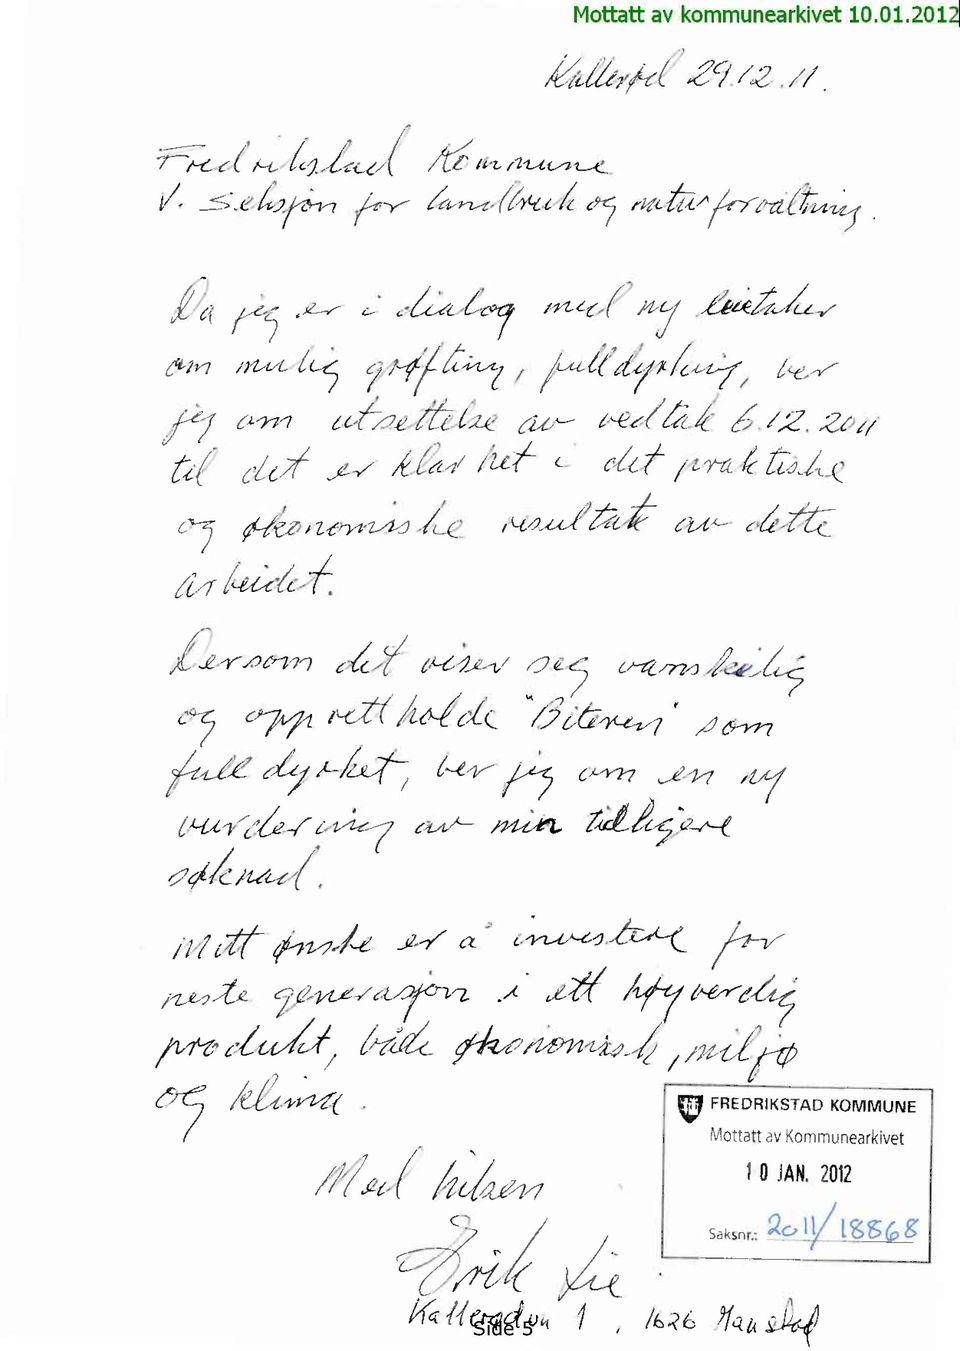 Mottatt av kommunearkivet 10.01.2012
Kallerød 29.12.11.
Fredrikstad Kommune
V. Seksjon for landbruk og naturforvaltning.
Da jeg er i dialog med ny leietaker
om mulig grøfting, fulldyrking, ber
jeg om utsettelse av vedtak 6.12.2011
til det er klarhet i det praktiske
og økonomiske resultatet av dette
arbeidet.
Dersom det viser seg vanskelig
og opprettholde "Biteren" som
full dyrket, ber jeg om en ny
vurdering av min tidligere
søknad.
Mitt ønske er å investere for
neste generasjon i ett høyverdig
produkt, både økonomisk, miljø
og klima.
FREDRIKSTAD KOMMUNE
Mottatt av Kommunearkivet
10 JAN. 2012
Saksnr.: 2011/18868
Med hilsen
Erik Lie
1, 1626 Manstad
Side 5